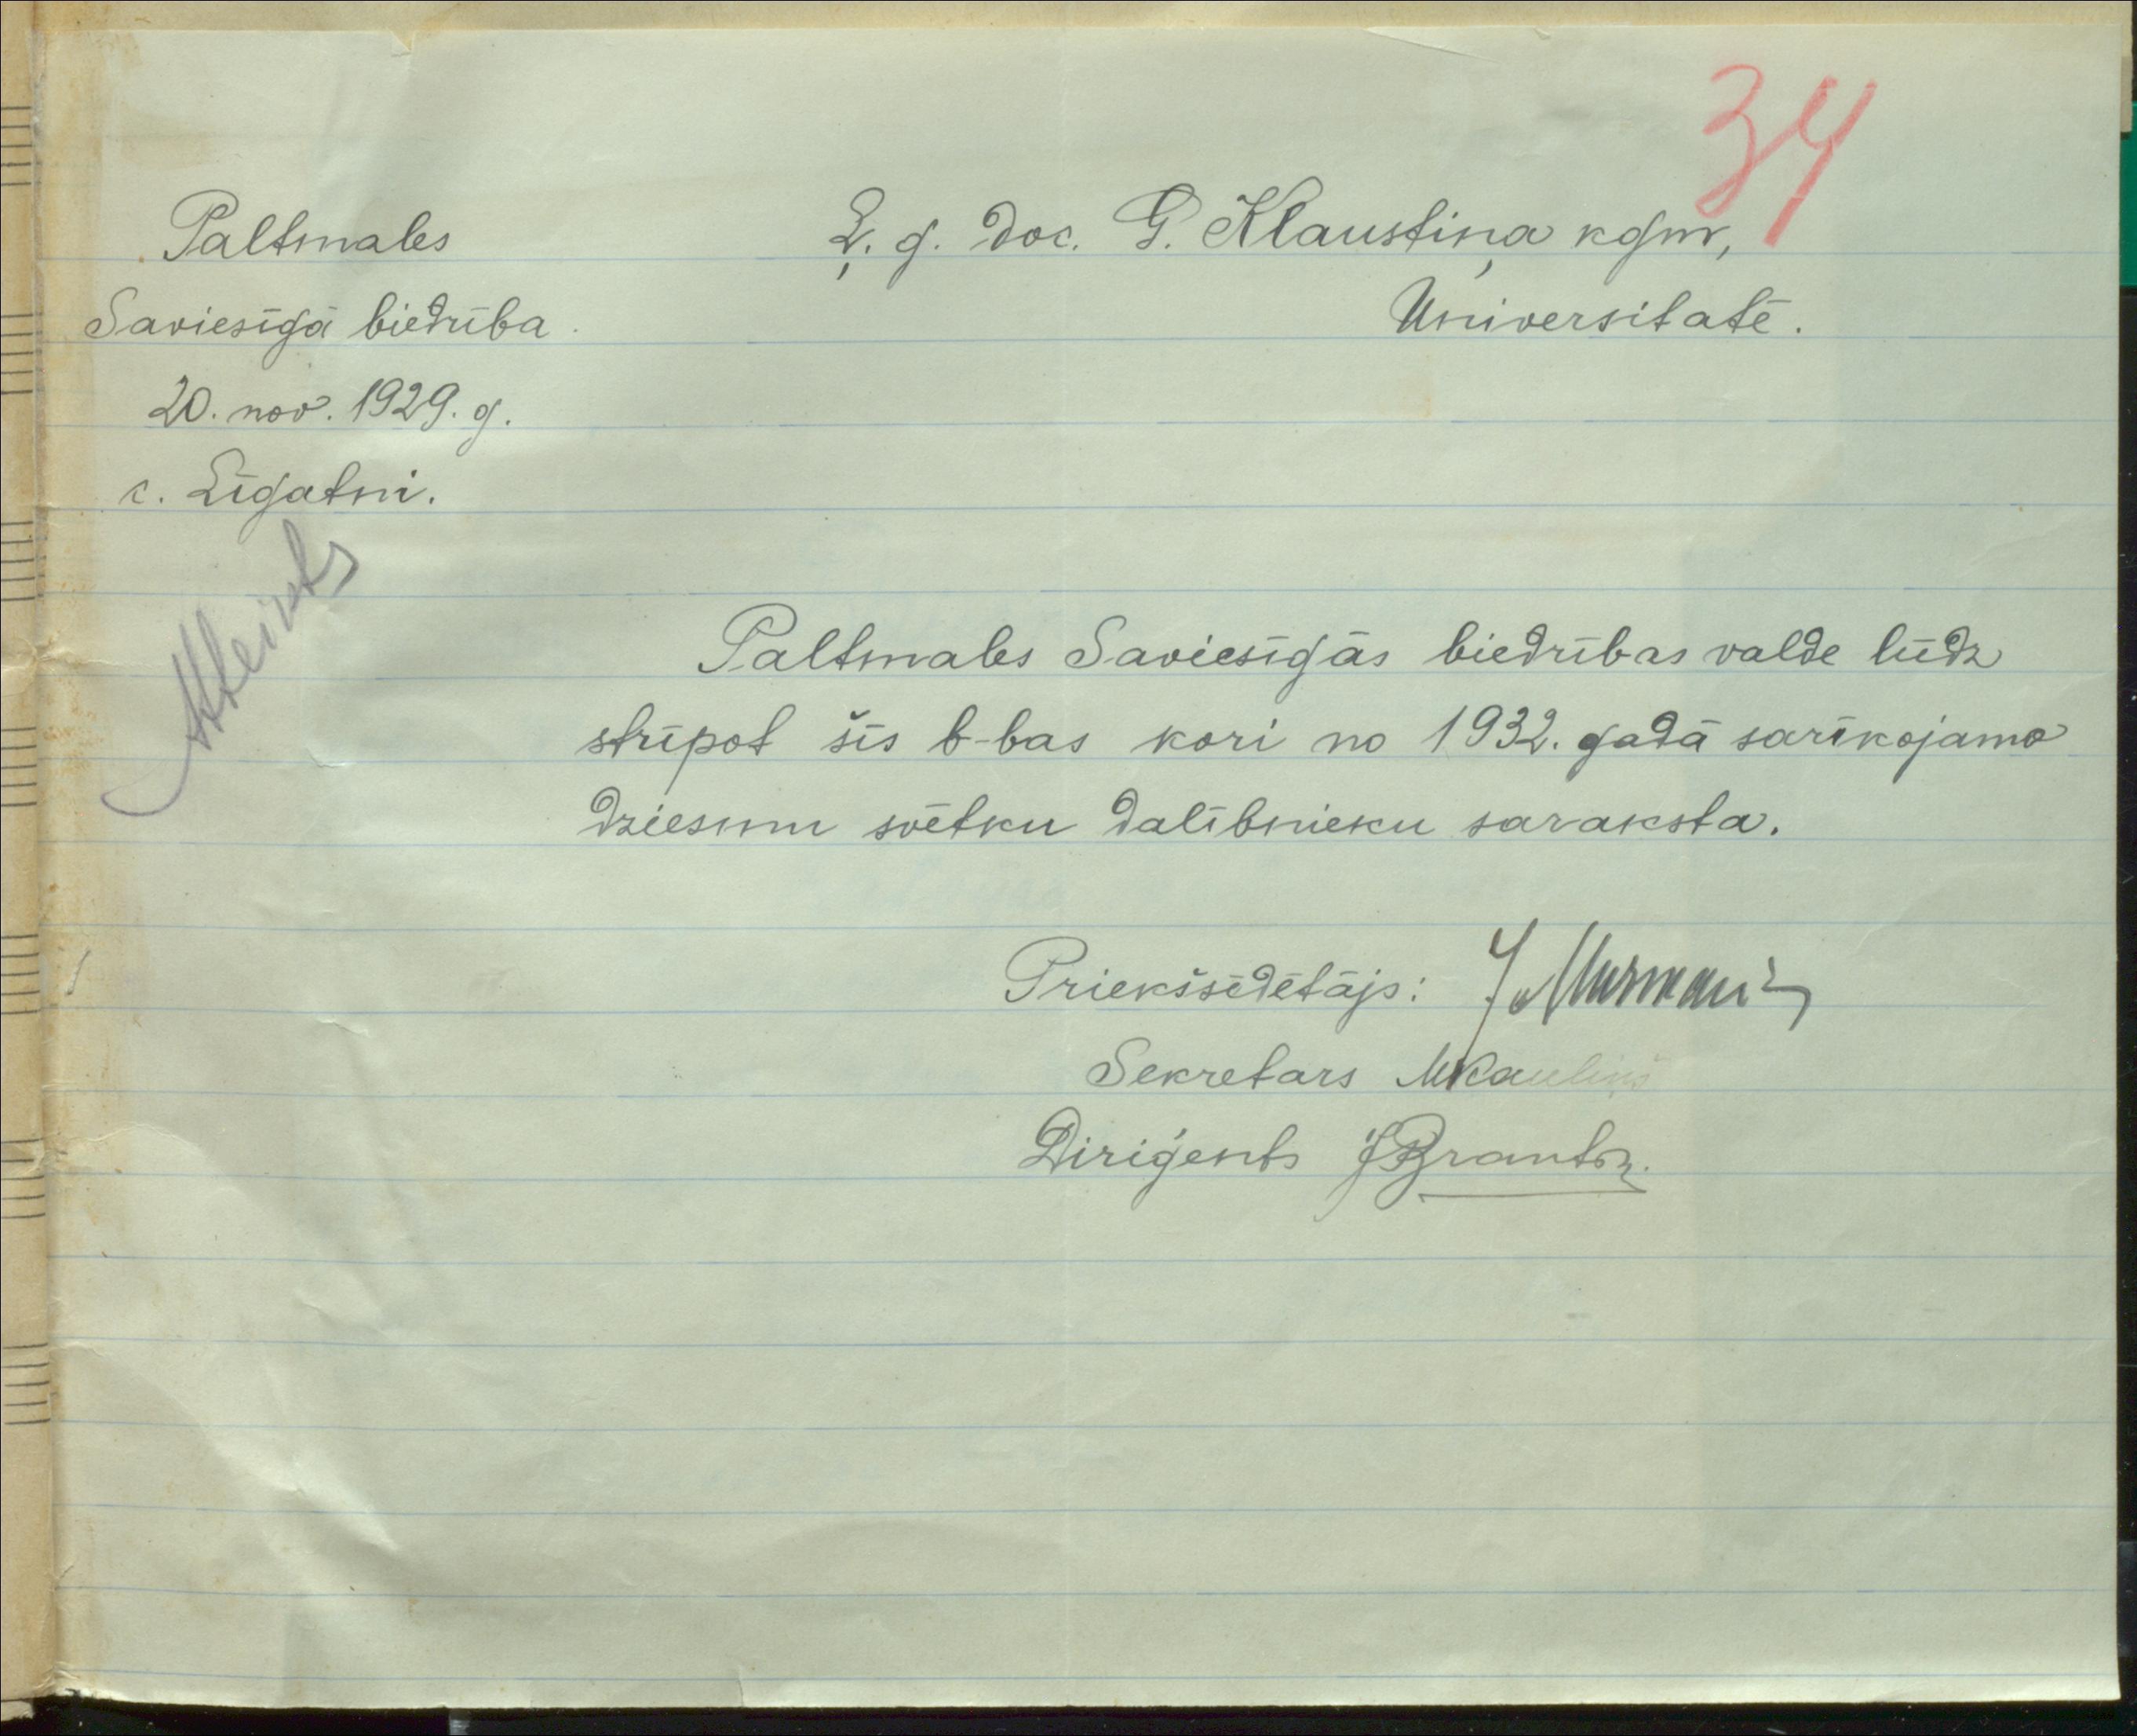 34
Paltmales
Saviesīgā biedrība.
20. nov. 1929. g.
c. Līgatni.
Ļ. g. doc. G. Klaustiņa kgm,
Universitatē.
Paltmales Saviesīgās biedrības valde lūdz
strīpot šīs b-bas kori no 1932. gadā sarīkojamo
dziesmu svētku dalībnieku saraksta.
Priekšsēdētājs:
Sekretars MKauliņš
Diriģents JBrants.